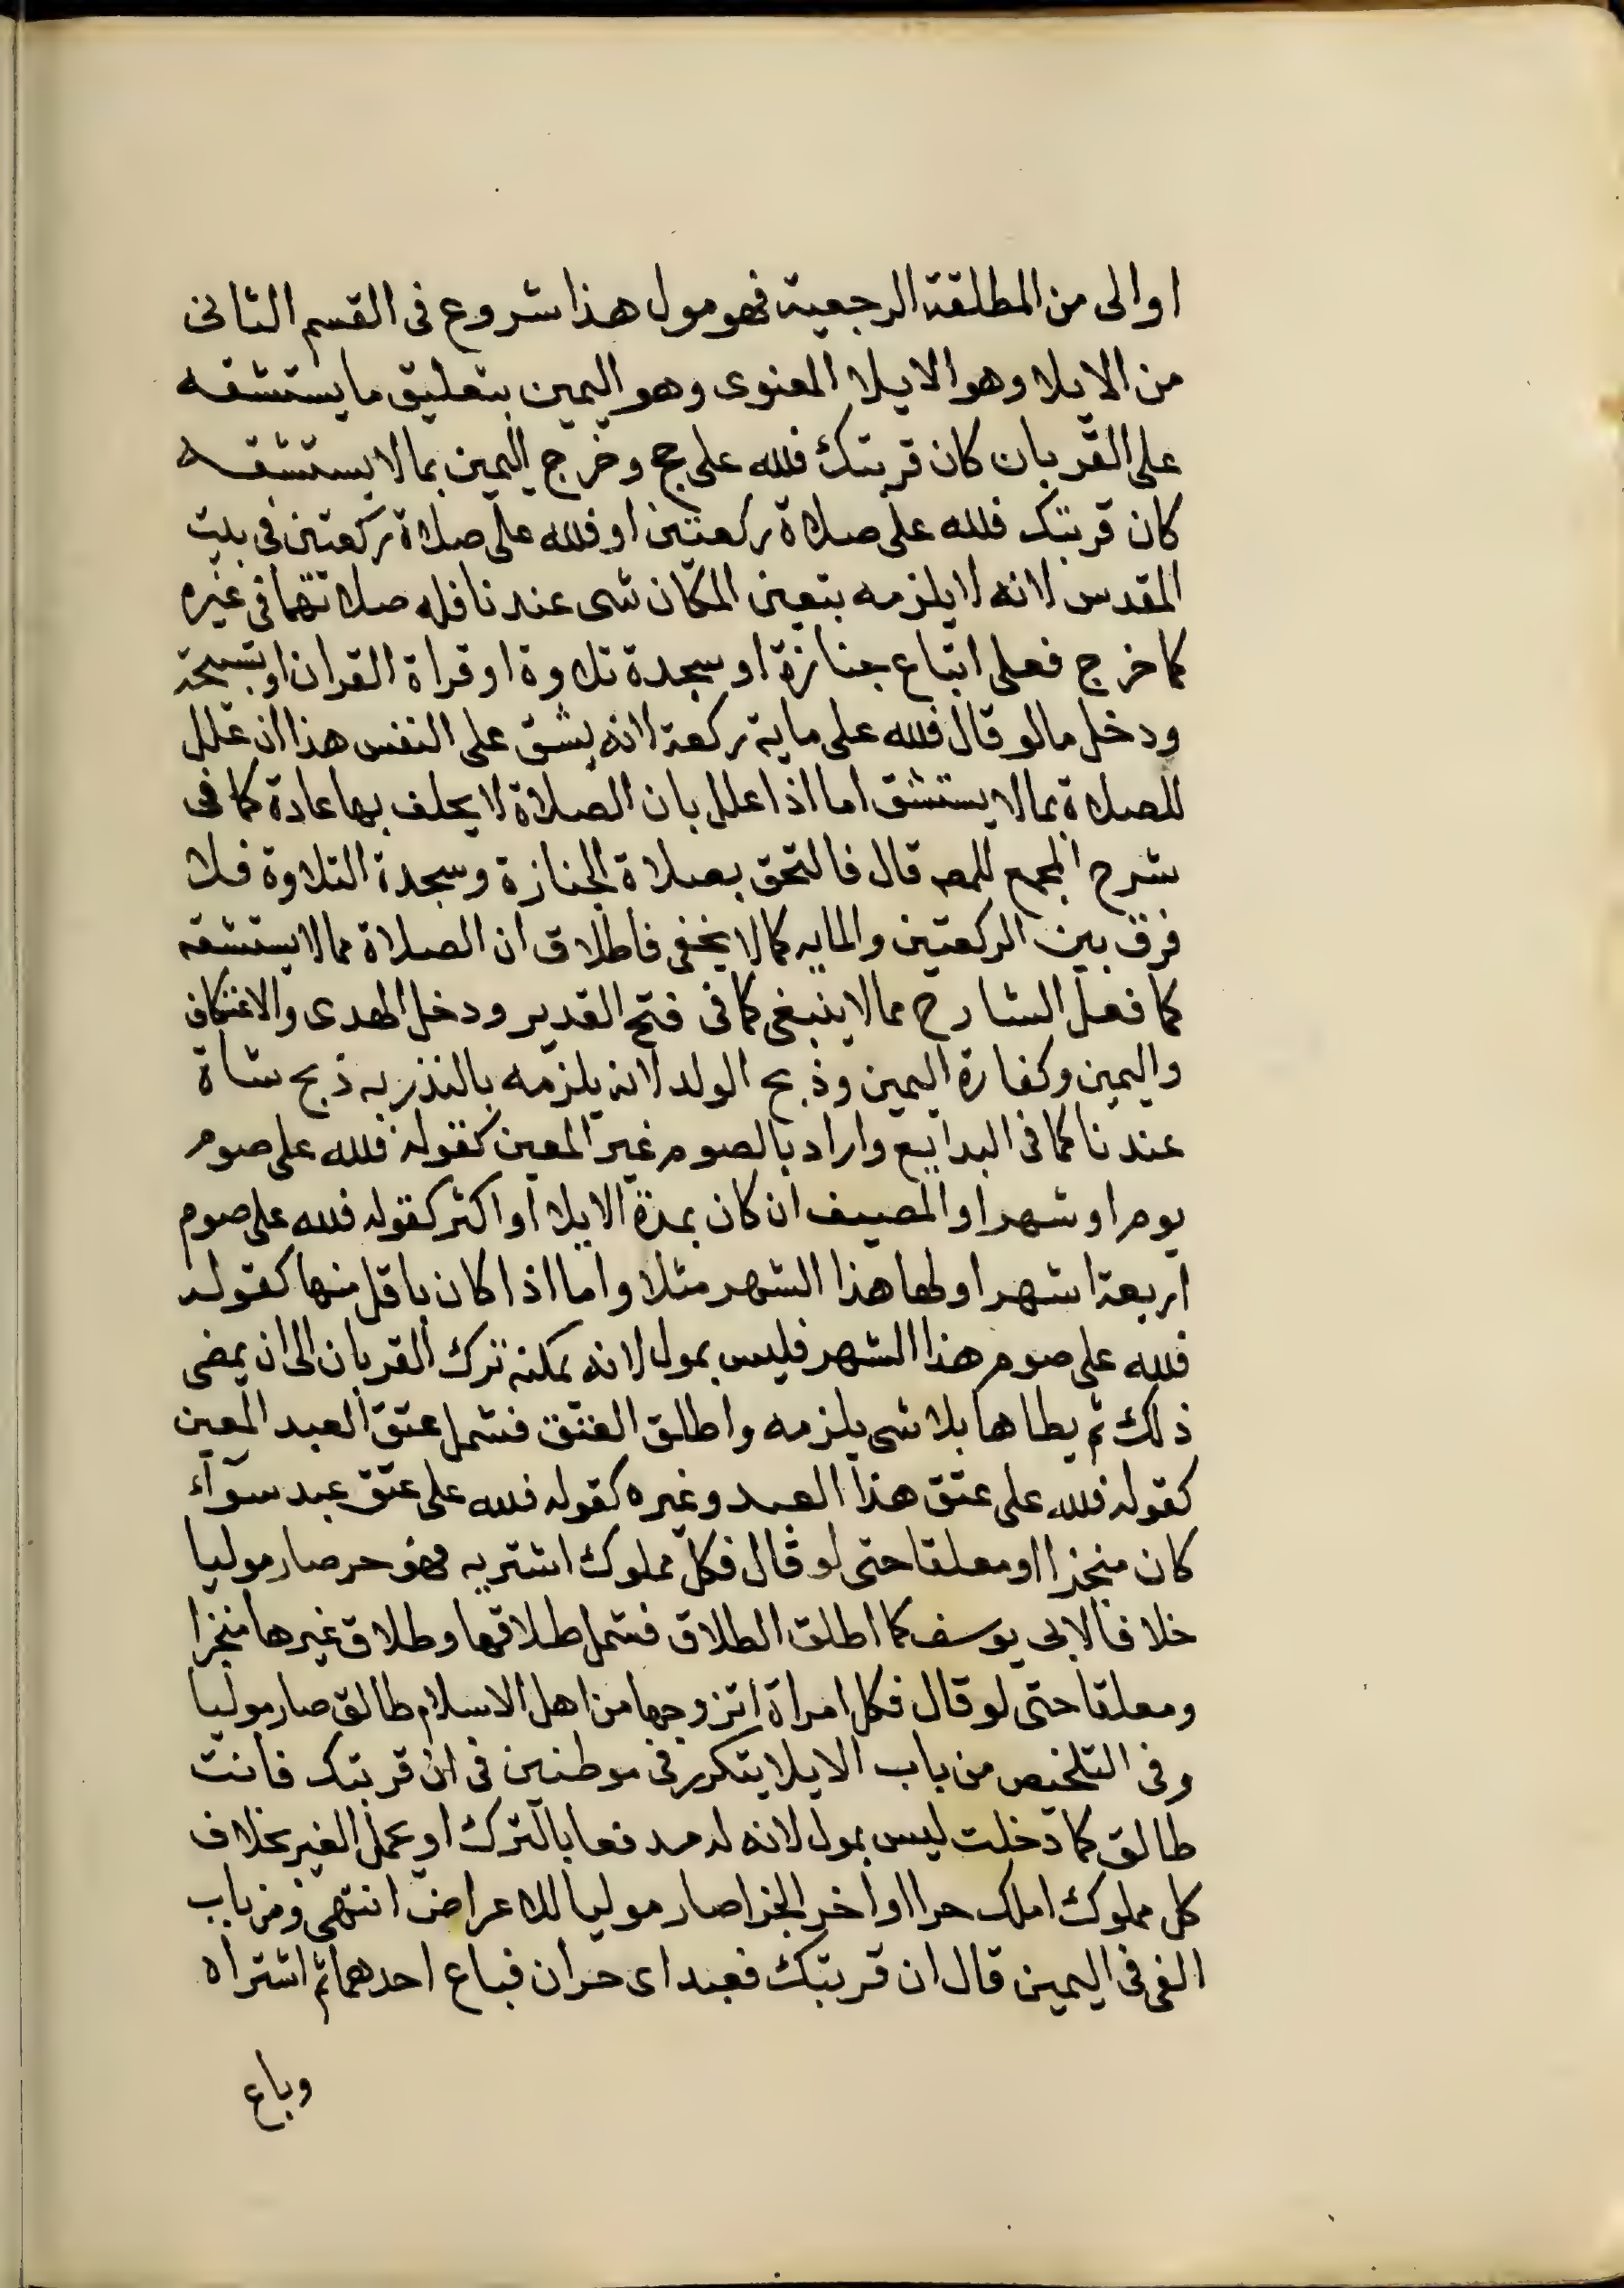 اوالى من المطلقة الرجعية فهو مول هذا شروع فى القسم الثانى
من الايلا وهو الايلا المعنوى وهو اليمين بتعليق ما يستشقه
على القربان كان قربتك فلله على حج وخرج اليمين بما لا يستشقه
كان قربتك فلله على صلاة ركعتين او فلله على صلاة ركعتين فى بيت
المقدس لانه لا يلزمه بتعين المكان شى عندنا فله صلاتهما فى غيره
كما خرج فعلى اتباع جنازة او سجدة تلاوة او قراة القران او تسبيحة
ودخل ما لو قال فلله على ماية ركعة لانه يشق على النفس هذا ان علل
للصلاة بما لا يستشق اما اذا علل بان الصلاة لا يحلف بها عادة كما فى
شرح المجمع للمصـ قال فالتحق بصلاة الجنازة وسجدة التلاوة فلا
فرق بين الركعتين والمايه كما لا يخفى فاطلاق ان الصلاة مما لا يستشقه
كما فعل الشارح مما لا ينبغى كما فى فتح القدير ودخل الهدى والاعتكاف
واليمين وكفارة اليمين وذبح الولد لانه يلزمه بالنذر به ذبح شاة
عندنا كما فى البدايع واراد بالصوم غير المعين كقوله فلله على صوم
يوم او شهر او المصيف ان كان بمدة الايلا او اكثر كقوله فلله على صوم
اربعة اشهر اولها هذا الشهر مثلا واما اذا كان باقل منها كقوله
فلله على صوم هذا الشهر فليس بمول لانه يمكنه ترك القربان الى ان يمضى
ذلك ثم يطاها بلا شى يلزمه واطلق العتق فشمل عتق العبد المعين
كقوله فلله على عتق هذا العبد وغيره كقوله فلله على عتق عبد سوآء
كان منجزا او معلقا حتى لو قال فكل مملوك اشتريه فهو حر صار موليا
خلافا لابى يوسف كما اطلق الطلاق فشمل طلاقها وطلاق غيرها منجزا
ومعلقا حتى لو قال فكل امراة اتزوجها من اهل الاسلام طالق صار موليا
وفى التلخيص من باب الايلا يتكرر فى موطنين فى ان قربتك فانت
طالق كما دخلت ليس بمول لانه له مدفعا بالترك او بحمل الغير بخلاف
كل مملوك املك حرا او اخر الجزا صار موليا للاعراض انتهى ومن باب
الفى فى اليمين قال ان قربتك فعبداى حران فباع احدهما ثم اشتراه
وباع